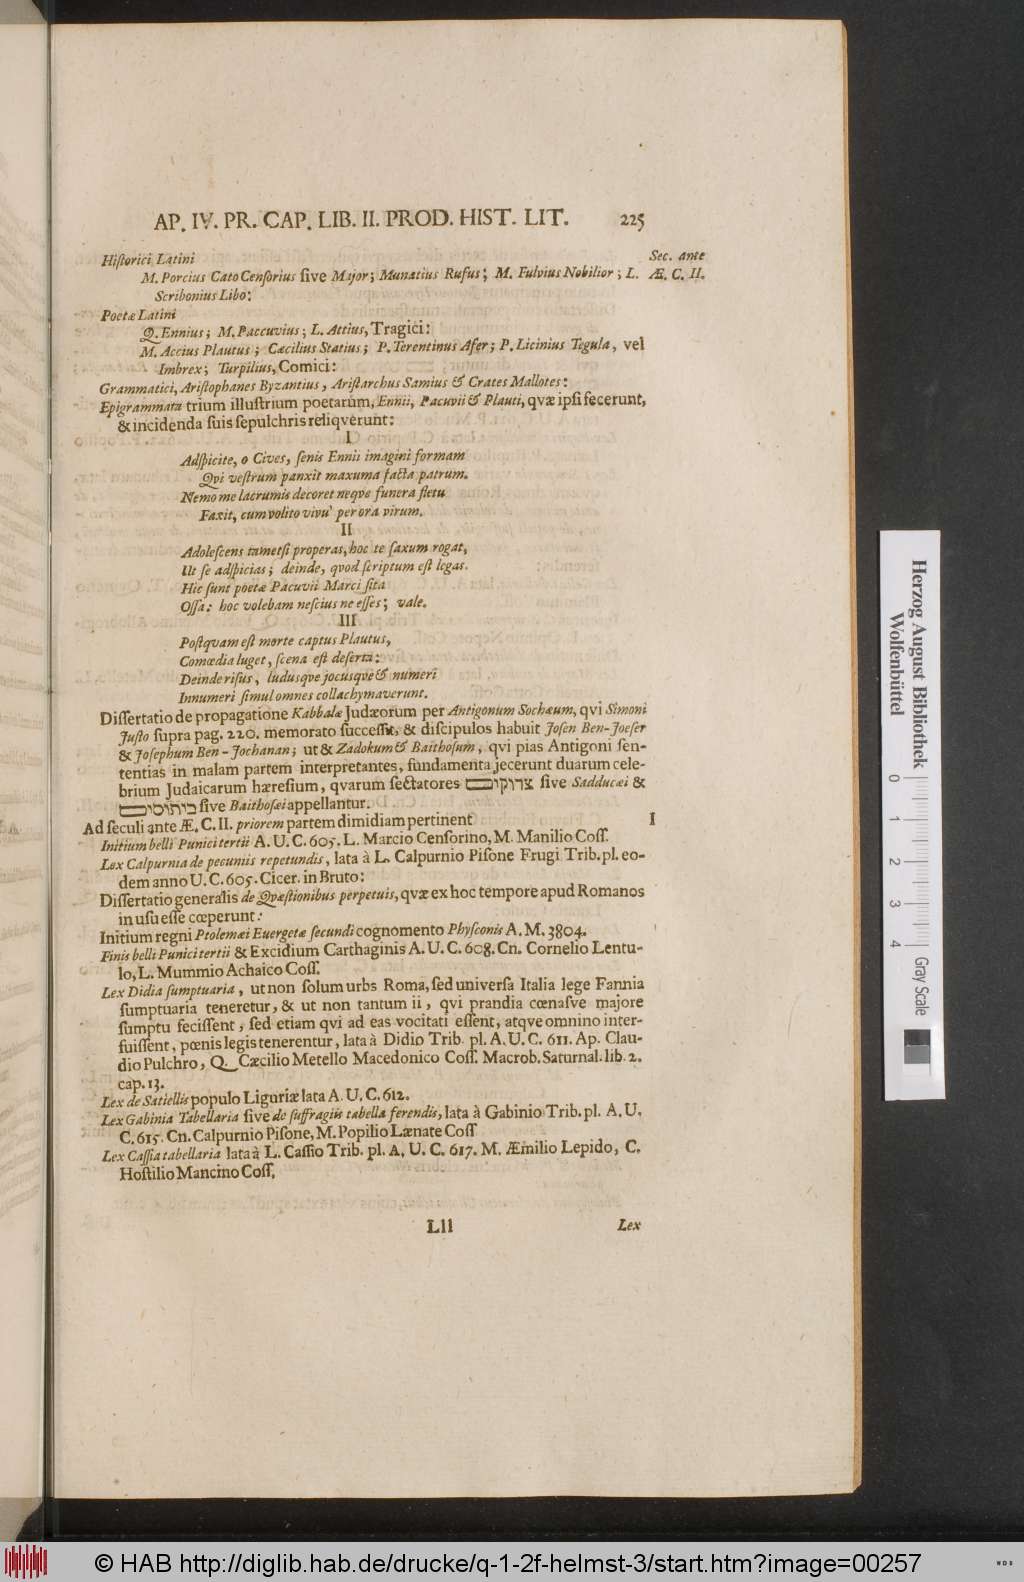 AP. IV. PR. CAP. LIB. II. PROD. HIST. LIT. 225
Sec. ante
Æ. C. II.
Hiſtorici Latini
M. Porcius Cato Cenſorius ſive Major; Munatius Rufus; M. Fulvius Nobilior; L.
Scribonius Libo:
Poetæ Latini
Q. Ennius; M. Paccuvius; L. Attius, Tragici:
M. Accius Plautus; Cæcilius Statius; P. Terentinus Afer; P. Licinius Tegula, vel
Imbrex; Turpilius, Comici:
Grammatici, Ariſtophanes Byzantius, Ariſtarchus Samius & Crates Mallotes:
Epigrammata trium illuſtrium poetarum, Ennii, Pacuvii & Plauti, qvæ ipſi fecerunt,
& incidenda ſuis ſepulchris reliqverunt:
I
Adſpicite, o Cives, ſenis Ennii imagini formam
Qvi veſtrum panxit maxuma facta patrum.
Nemo me lacrumis decoret neqve funera fletu
Faxit, cum volito vivu' per ora virum.
II
Adoleſcens tametſi properas, hoc te ſaxum rogat,
Ut ſe adſpicias; deinde, qvod ſcriptum eſt legas.
Hic ſunt poetæ Pacuvii Marci ſita
Oſſa: hoc volebam neſcius ne eſſes; vale.
III
Poſtqvam eſt morte captus Plautus,
Comœdia luget, ſcena eſt deſerta:
Deinde riſus, ludusqve jocusqve & numeri
Innumeri ſimul omnes collachymaverunt.
Diſſertatio de propagatione Kabbalæ Judæorum per Antigonum Sochæum, qvi Simoni
Juſto ſupra pag. 220. memorato ſucceſſit, & diſcipulos habuit Joſen Ben-Joeſer
& Joſephum Ben-Jochanan; ut & Zadokum & Baithoſum, qvi pias Antigoni ſen-
tentias in malam partem interpretantes, fundamenta jecerunt duarum cele-
brium Judaicarum hæreſium, qvarum ſectatores צדוקים ſive Sadducæi &
ביתוסים ſive Baithoſæi appellantur.
Ad ſeculi ante Æ. C. II. priorem partem dimidiam pertinent I
Initium belli Punici tertii A. U. C. 605. L. Marcio Cenſorino, M. Manilio Coſſ.
Lex Calpurnia de pecuniis repetundis, lata à L. Calpurnio Piſone Frugi Trib. pl. eo-
dem anno U. C. 605. Cicer. in Bruto:
Diſſertatio generalis de Qvæſtionibus perpetuis, qvæ ex hoc tempore apud Romanos
in uſu eſſe cœperunt:
Initium regni Ptolemæi Euergetæ ſecundi cognomento Phyſconis A. M. 3804.
Finis belli Punici tertii & Excidium Carthaginis A. U. C. 608. Cn. Cornelio Lentu-
lo, L. Mummio Achaico Coſſ.
Lex Didia ſumptuaria, ut non ſolum urbs Roma, ſed univerſa Italia lege Fannia
ſumptuaria teneretur, & ut non tantum ii, qvi prandia cœnaſve majore
ſumptu feciſſent, ſed etiam qvi ad eas vocitati eſſent, atqve omnino inter-
fuiſſent, pœnis legis tenerentur, lata à Didio Trib. pl. A. U. C. 611. Ap. Clau-
dio Pulchro, Q. Cæcilio Metello Macedonico Coſſ. Macrob. Saturnal. lib. 2.
cap. 13.
Lex de Satiellis populo Liguriæ lata A. U. C. 612.
Lex Gabinia Tabellaria ſive de ſuffragiis tabella ferendis, lata à Gabinio Trib. pl. A. U.
C. 615. Cn. Calpurnio Piſone, M. Popilio Lænate Coſſ
Lex Caſſia tabellaria lata à L. Caſſio Trib. pl. A. U. C. 617. M. Æmilio Lepido, C.
Hoſtilio Mancino Coſſ.
Lll Lex
Herzog August Bibliothek
Wolfenbüttel
0 1 2 3 4
Gray Scale
© HAB http://diglib.hab.de/drucke/q-1-2f-helmst-3/start.htm?image=00257
WDB